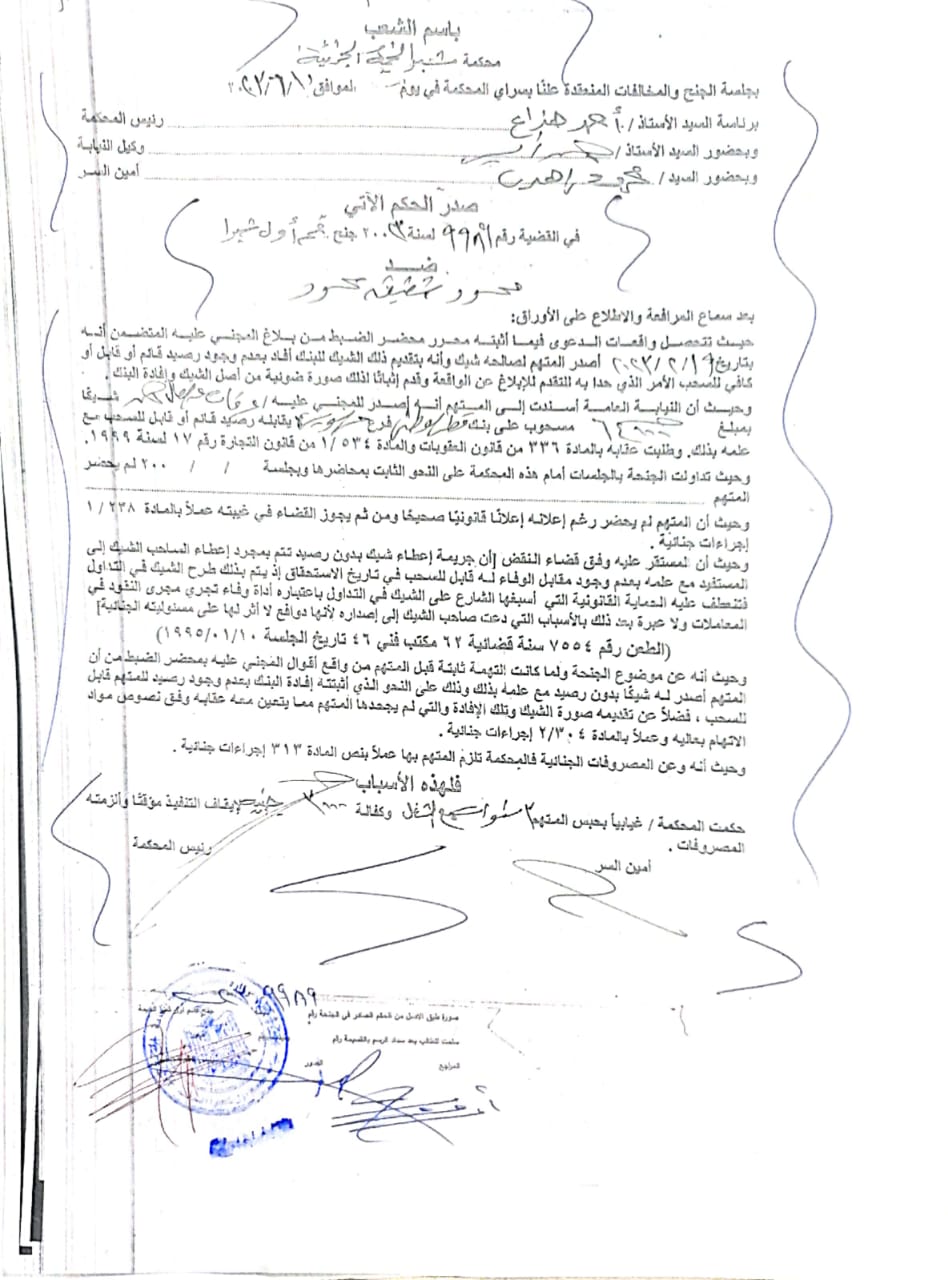 باسم الشعب
محكمة شبرا الخيمة الجزئية
بجلسة الجنح والمخالفات المنعقدة علنًا بسراي المحكمة في يوم الموافق ٢٠٢٣/٦/١
برئاسة السيد الأستاذ / أحمد هزاع رئيس المحكمة
وبحضور السيد الأستاذ / وكيل النيابة
وبحضور السيد / أمين السر
صدر الحكم الآتي
في القضية رقم ٩٩٨٩ لسنة ٢٠٠٣ جنح قسم أول شبرا
ضد
محمود شفيق محمود
بعد سماع المرافعة والاطلاع على الأوراق:
حيث تتحصل واقعات الدعوى فيما أثبته محرر محضر الضبط من بلاغ المجني عليه المتضمن أنه
بتاريخ ٢٠٢٣/٢/١٩ أصدر المتهم لصالحه شيك وأنه بتقديم ذلك الشيك للبنك أفاد بعدم وجود رصيد قائم أو قابل أو
كافي للسحب الأمر الذي حدا به للتقدم للإبلاغ عن الواقعة وقدم إثباتًا لذلك صورة ضوئية من أصل الشيك وإفادة البنك .
وحيث أن النيابة العامة أسندت إلى المتهم أنه إصدر للمجني عليه / شيكًا
بمبلغ مسحوب على بنك قطر الوطني فرع لا يقابله رصيد قائم أو قابل للسحب مع
علمه بذلك. وطلبت عقابه بالمادة ٣٣٦ من قانون العقوبات والمادة ١/٥٣٤ من قانون التجارة رقم ١٧ لسنة ١٩٩٩.
وحيث تداولت الجنحة بالجلسات أمام هذه المحكمة على النحو الثابت بمحاضرها وبجلسة / / ٢٠٠ لم يحضر
المتهم
وحيث أن المتهم لم يحضر رغم إعلانه إعلانًا قانونيًا صحيحًا ومن ثم يجوز القضاء في غيبته عملاً بالمادة ٢٣٨ / ١
إجراءات جنائية .
وحيث أن المستقر عليه وفق قضاء النقض [أن جريمة إعطاء شيك بدون رصيد تتم بمجرد إعطاء الساحب الشيك إلى
المستفيد مع علمه بعدم وجود مقابل الوفاء له قابل للسحب في تاريخ الاستحقاق إذ يتم بذلك طرح الشيك في التداول
فتنعطف عليه الحماية القانونية التي أسبغها الشارع على الشيك في التداول باعتباره أداة وفاء تجري مجرى النقود في
المعاملات ولا عبرة بعد ذلك بالأسباب التي دعت صاحب الشيك إلى إصداره لأنها دوافع لا أثر لها على مسئوليته الجنائية]
(الطعن رقم ٧٥٥٤ سنة قضائية ٦٢ مكتب فني ٤٦ تاريخ الجلسة ١٩٩٥/٠١/١٠)
وحيث أنه عن موضوع الجنحة ولما كانت التهمة ثابتة قبل المتهم من واقع أقوال المجني عليه بمحضر الضبط من أن
المتهم أصدر له شيكًا بدون رصيد مع علمه بذلك وذلك على النحو الذي أثبتته إفادة البنك بعدم وجود رصيد للمتهم قابل
للسحب ، فضلاً عن تقديمه صورة الشيك وتلك الإفادة والتي لم يجحدها المتهم مما يتعين معه عقابه وفق نصوص مواد
الاتهام بعاليه وعملاً بالمادة ٢/٣٠٤ إجراءات جنائية .
وحيث أنه وعن المصروفات الجنائية فالمحكمة تلزم المتهم بها عملاً بنص المادة ٣١٣ إجراءات جنائية .
فلهذه الأسباب
حكمت المحكمة / غيابياً بحبس المتهم ٣ سنوات مع الشغل وكفالة ٣٠٠٠ جنيه لإيقاف التنفيذ مؤقتًا وألزمته
المصروفات .
أمين السر رئيس المحكمة
٩٩٨٩
صورة طبق الاصل من الحكم الصادر في الجنحة رقم
سلمت للطالب بعد سداد الرسم بالقسيمة رقم
المراجع